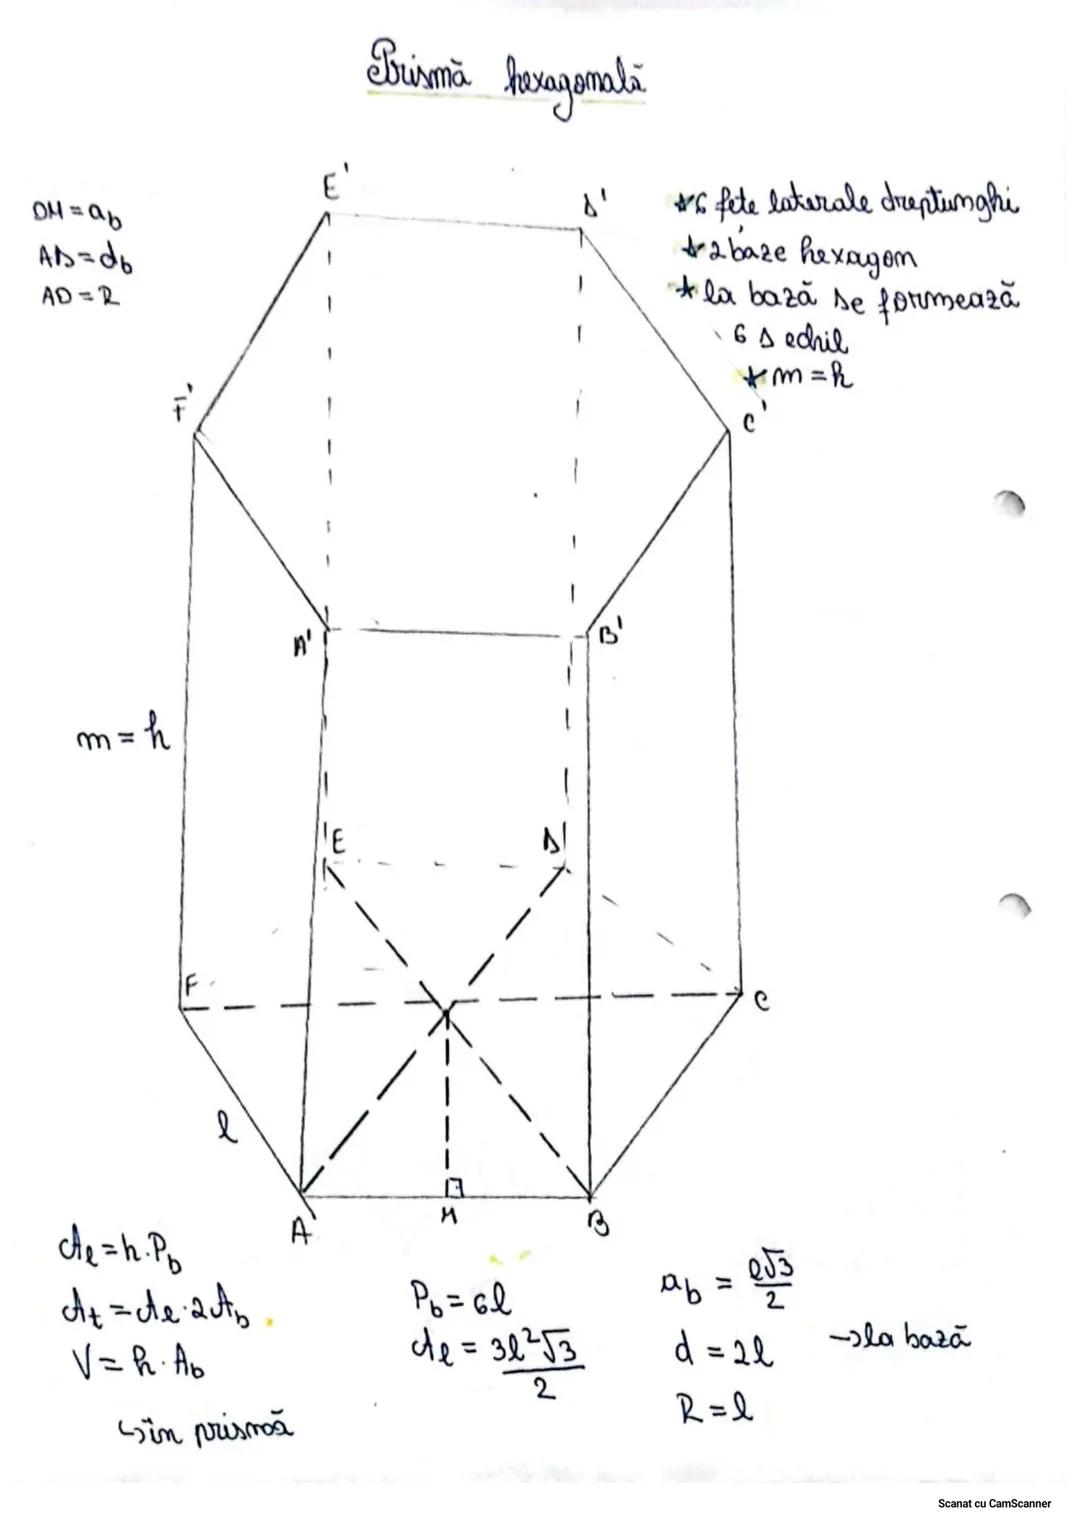 Prismă hexagonală
OM = ab
AD = db
AO = R
*6 fețe laterale dreptunghi
*2 baze hexagon
*la bază se formează
6 Δ echil
*m = h
E'
D'
F'
C'
A'
B'
m = h
E
D
F
C
l
A
M
B
Al = h·Pb
At = Al·2Ab
V = h·Ab
↳în prismă
Pb = 6l
Al = 3l²√3/2
ab = l√3/2
d = 2l
→la bază
R = l
Scanat cu CamScanner